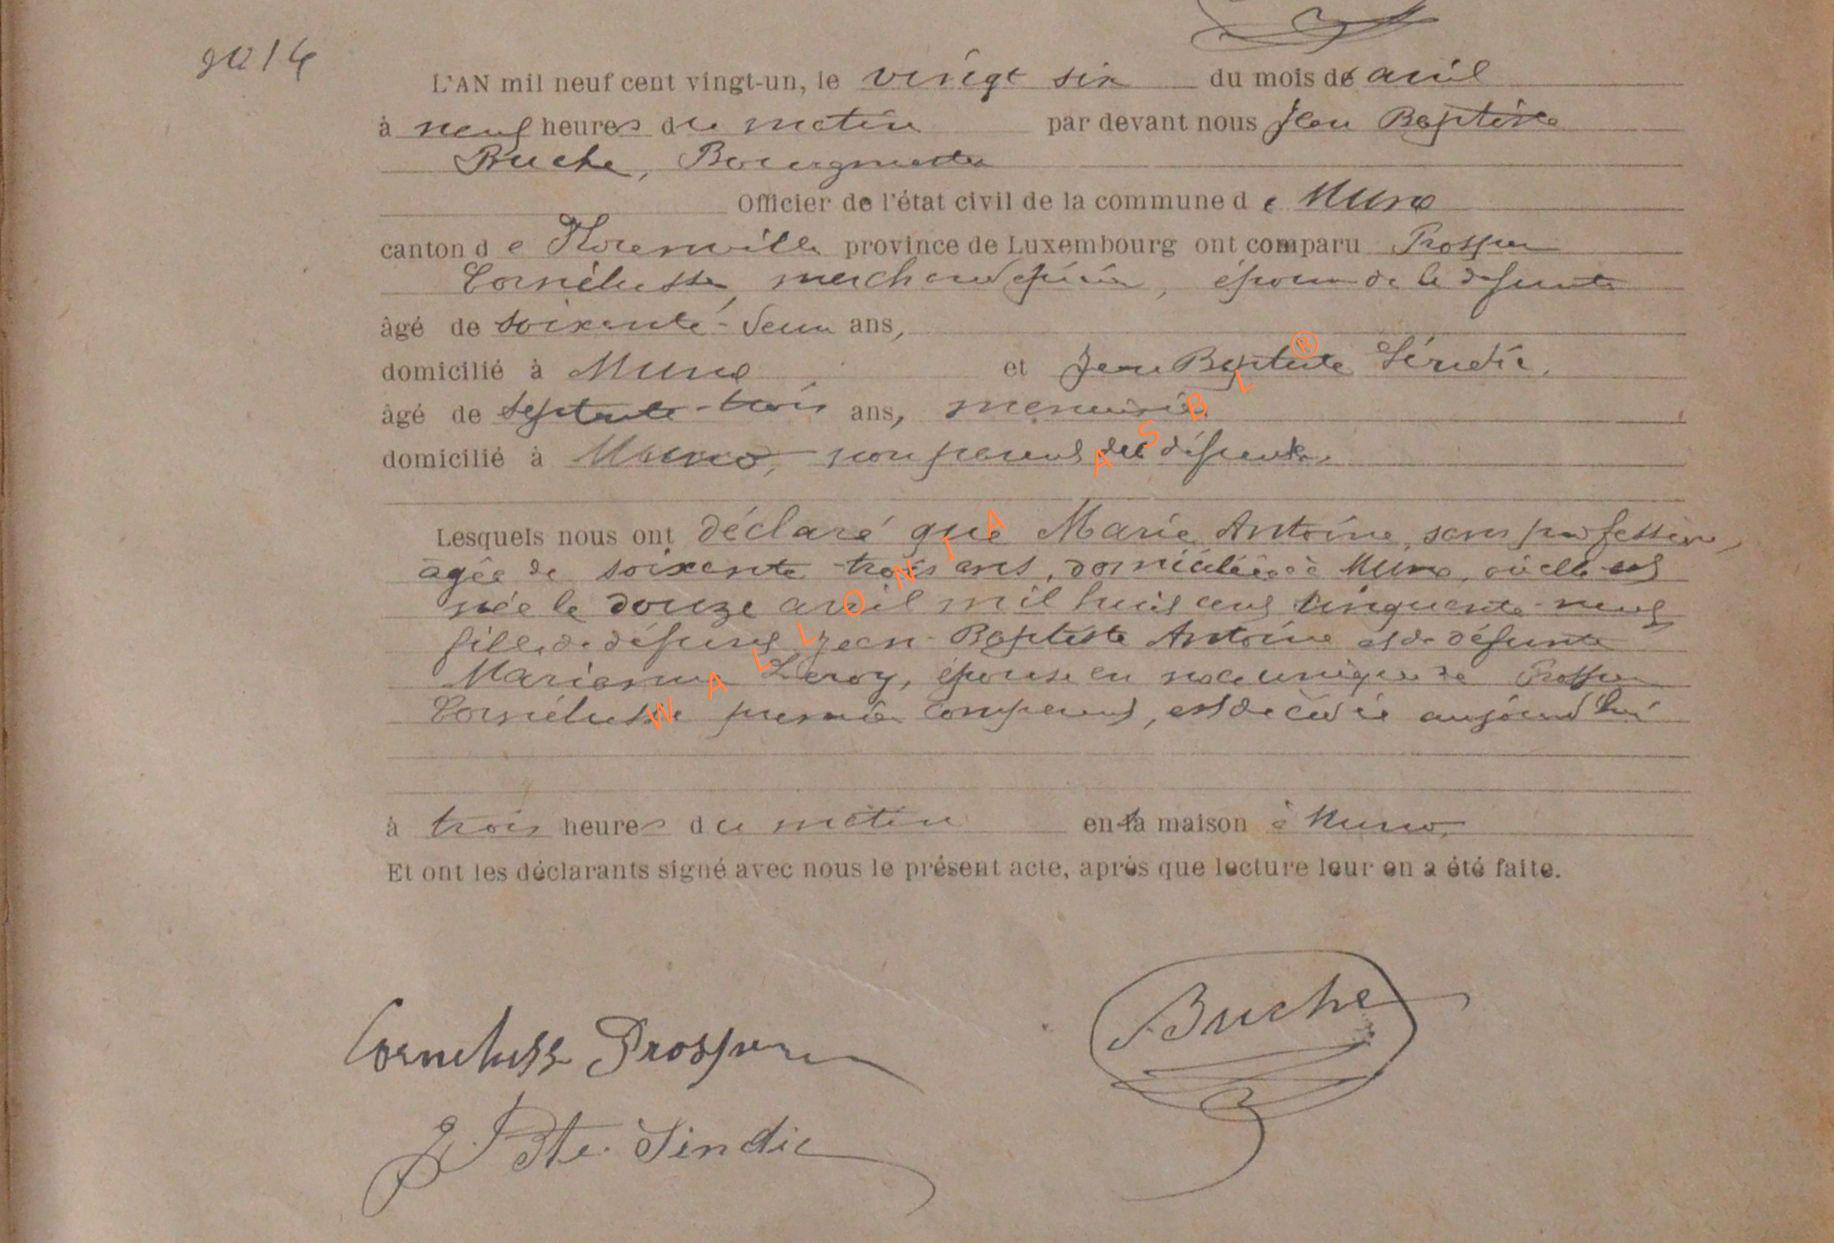 No 14
L'AN mil neuf cent vingt-un, le vingt six du mois de avril
à neuf heures du matin par devant nous Jean Baptiste
Buche, Bourgmestre
Officier de l'état civil de la commune de Muno
canton de Florenville province de Luxembourg ont comparu Prosper
Cornélusse, marchand épicier, époux de la défunte
âgé de soixante-deux ans,
domicilié à Muno et Jean Baptiste Sindic,
âgé de septante-trois ans, menuisier
domicilié à Muno, non parent de la défunte,
Lesquels nous ont déclaré que Marie Antoine, sans profession,
âgée de soixante trois ans, domiciliée à Muno, où elle est
née le douze avril mil huit cent cinquante-neuf
fille de défunt Jean-Baptiste Antoine et de défunte
Marianne Leroy, épouse en noce unique de Prosper
Cornélusse premier comparant, est décédée aujourd'hui
à trois heures du matin en sa maison à Muno,
Et ont les déclarants signé avec nous le présent acte, après que lecture leur en a été faite.
Buche
Corneluss Prosper
J. Bte. Sindic
WALLONIA ASBL ®